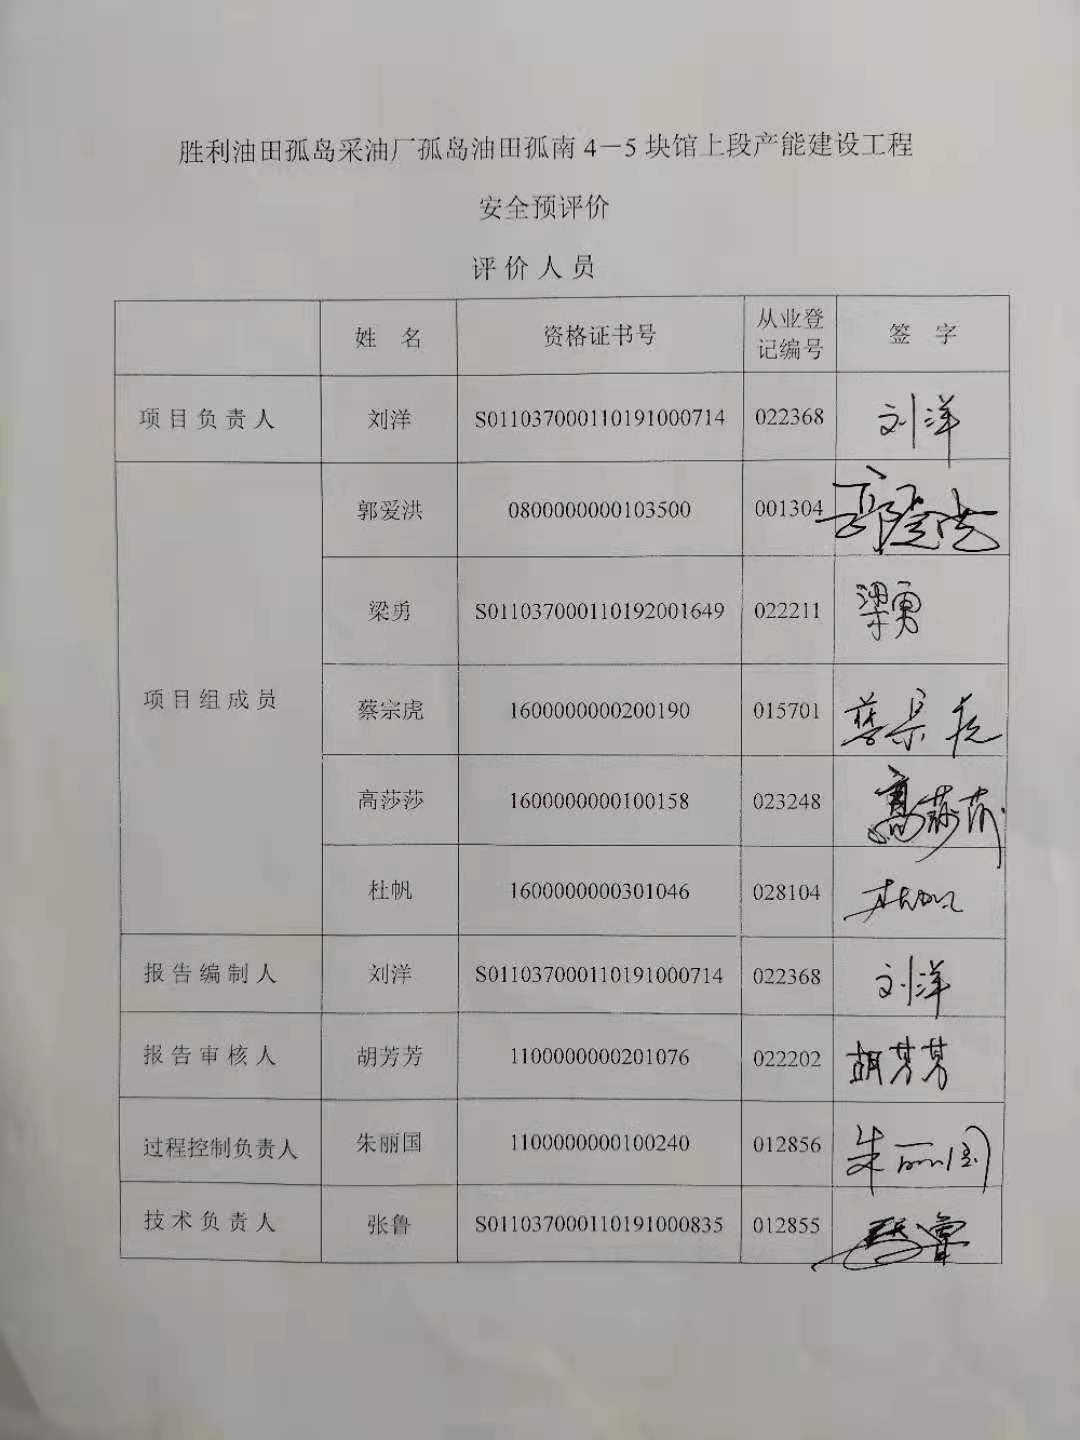 胜利油田孤岛采油厂孤岛油田孤南4－5块馆上段产能建设工程
安全预评价
评价人员
姓 名 资格证书号 从业登记编号 签 字
项目负责人 刘洋 S011037000110191000714 022368 刘洋
项目组成员 郭爱洪 0800000000103500 001304 郭爱洪
梁勇 S011037000110192001649 022211 梁勇
蔡宗虎 1600000000200190 015701 蔡宗虎
高莎莎 1600000000100158 023248 高莎莎
杜帆 1600000000301046 028104 杜帆
报告编制人 刘洋 S011037000110191000714 022368 刘洋
报告审核人 胡芳芳 1100000000201076 022202 胡芳芳
过程控制负责人 朱丽国 1100000000100240 012856 朱丽国
技术负责人 张鲁 S011037000110191000835 012855 张鲁